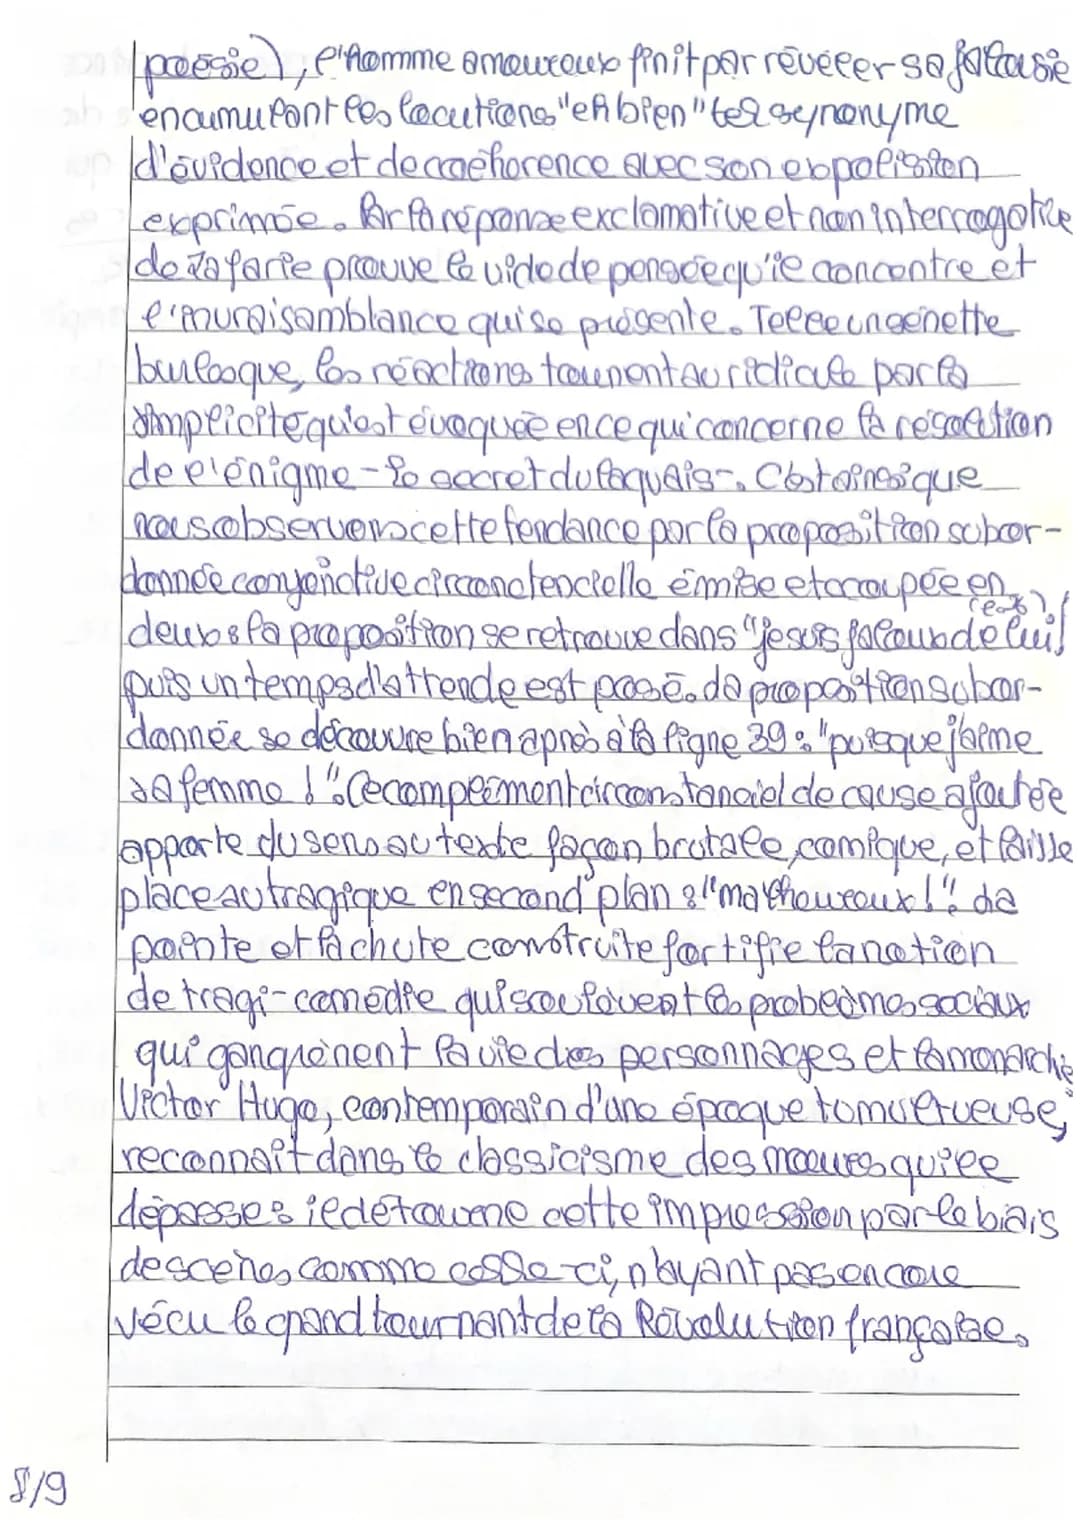 poésie), l'homme amoureux finit par révéler sa jalousie
en cumulant les locutions "eh bien" tel synonyme
d'évidence et de cohérence avec son explosion
exprimée. Par la réponse exclamative et non interrogative
de Zafari prouve le vide de pensée qu'il concentre et
l'invraisamblance qui se présente. Telle une saynette
burlesque, les réactions tournent au ridicule par la
simplicité qui est évoquée en ce qui concerne la résolution
de l'énigme - le secret du laquais -. C'est ainsi que
nous observons cette tendance par la proposition subor-
donnée conjonctive circonstencielle émise et coupée en
deux : la proposition se retrouve dans "je suis jaloux de lui !
puis un temps d'attende est posé. La proposition subor-
donnée se découvre bien après à la ligne 39 : "puisque j'aime
sa femme !". Ce complément circonstanciel de cause ajoutée
apporte du sens au texte façon brutale, comique, et laisse
place au tragique en second plan : "malheureux !". La
pointe et la chute construite fortifie la notion
de tragi-comédie qui soulèvent les problèmes sociaux
qui gangrènent la vie des personnages et la monarchie
Victor Hugo, contemporain d'une époque tumultueuse,
reconnaît dans le classicisme des mœurs qu'il
dépasse : il détourne cette impression par le biais
de scènes comme celle-ci, n'ayant pas encore
vécu le grand tournant de la Révolution française.
8/9